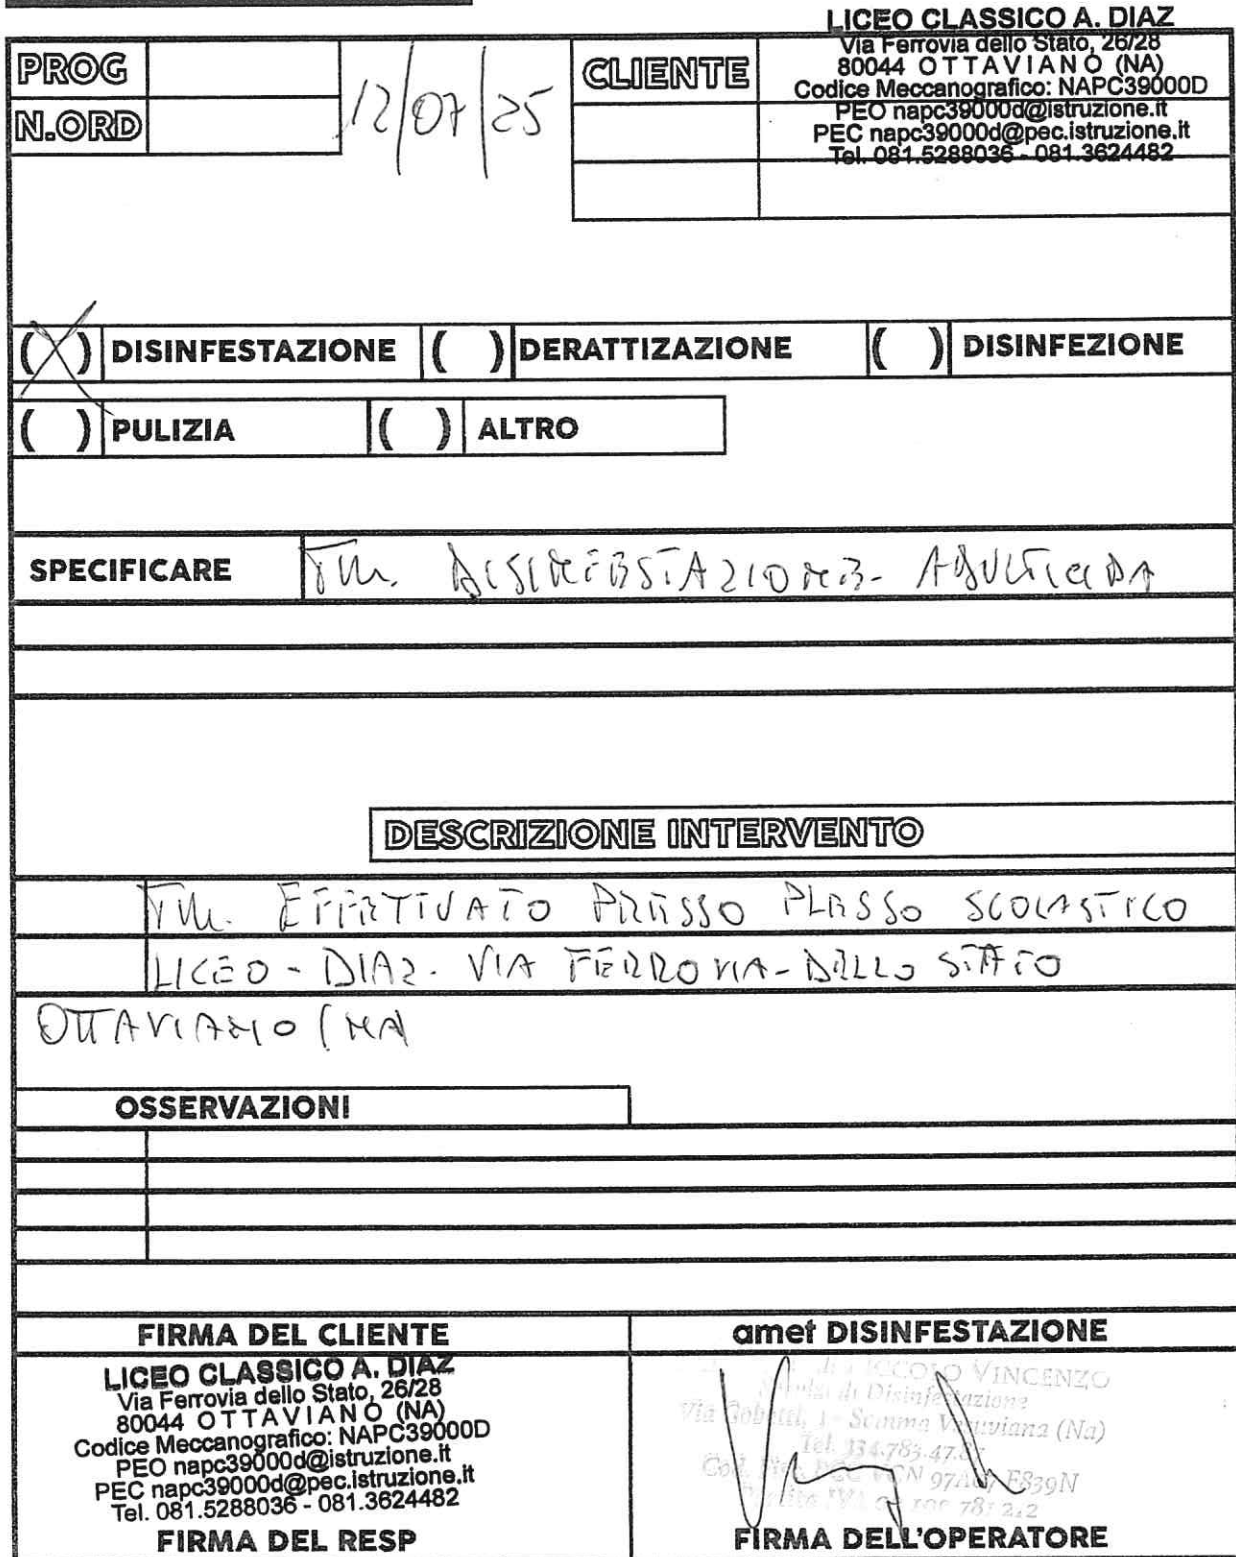 LICEO CLASSICO A. DIAZ
Via Ferrovia dello Stato, 26/28
80044 OTTAVIANO (NA)
Codice Meccanografico: NAPC39000D
PEO napc39000d@istruzione.it
PEC napc39000d@pec.istruzione.it
Tel. 081.5288036 - 081.3624482
PROG
N.ORD
12/07/25
CLIENTE
( ) DISINFESTAZIONE ( ) DERATTIZAZIONE ( ) DISINFEZIONE
( ) PULIZIA ( ) ALTRO
SPECIFICARE DISINFESTAZIONE - ADULTICIDA
DESCRIZIONE INTERVENTO
EFFETTUATO PRESSO PLESSO SCOLASTICO
LICEO - DIAZ. VIA FERROVIA - DELLO STATO
OTTAVIANO (NA
OSSERVAZIONI
FIRMA DEL CLIENTE
amet DISINFESTAZIONE
LICEO CLASSICO A. DIAZ
Via Ferrovia dello Stato, 26/28
80044 OTTAVIANO (NA)
Codice Meccanografico: NAPC39000D
PEO napc39000d@istruzione.it
PEC napc39000d@pec.istruzione.it
Tel. 081.5288036 - 081.3624482
FIRMA DEL RESP
VINCENZO
di Disinfestazione
Via Gobetti, 1 - Somma Vesuviana (Na)
Tel. 334.783.47.
E839N
FIRMA DELL'OPERATORE